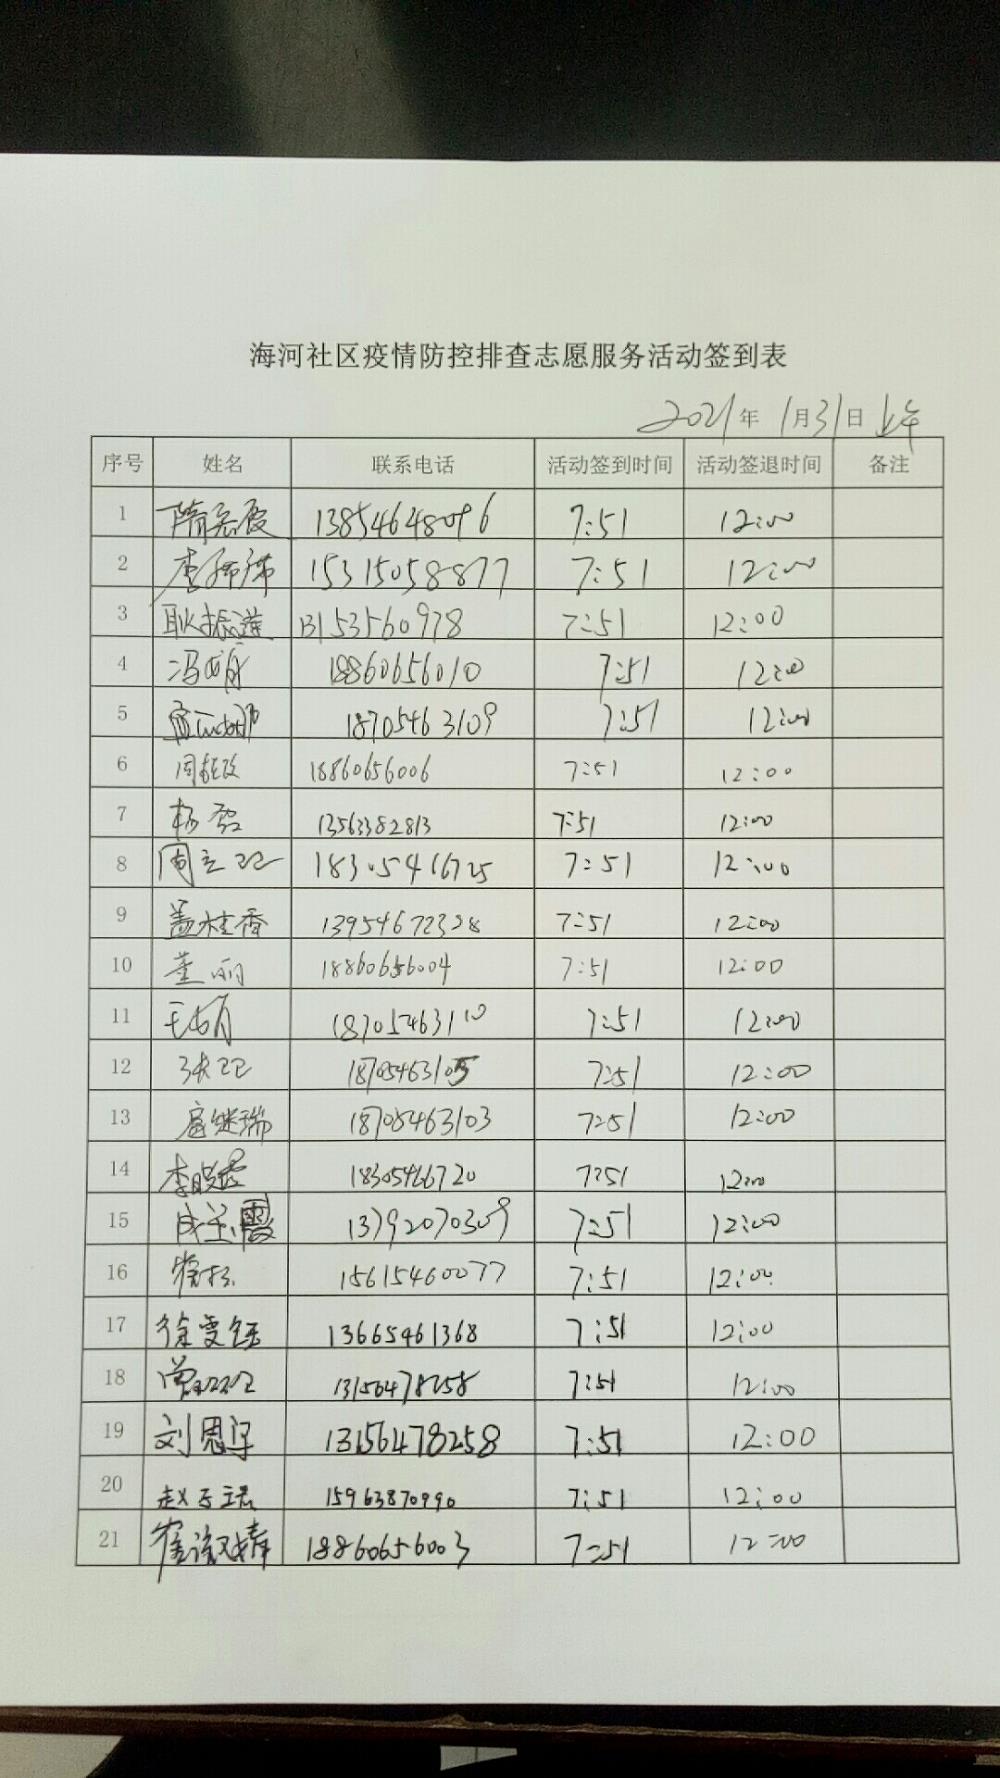 海河社区疫情防控排查志愿服务活动签到表
2021年 1月31日 上午
序号 姓名 联系电话 活动签到时间 活动签退时间 备注
1 13854648096 7:51 12:00
2 15315058877 7:51 12:00
3 耿振莲 13153560978 7:51 12:00
4 18860656010 7:51 12:00
5 18705463109 7:51 12:00
6 18860656006 7:51 12:00
7 杨 13563382813 7:51 12:00
8 18305466725 7:51 12:00
9 盖桂香 13954672328 7:51 12:00
10 董丽 18860656004 7:51 12:00
11 18705463110 7:51 12:00
12 18705463105 7:51 12:00
13 扈继瑞 18705463103 7:51 12:00
14 18305466720 7:51 12:00
15 成玉霞 13792070309 7:51 12:00
16 15615460077 7:51 12:00
17 徐雯钰 13665461368 7:51 12:00
18 13156478258 7:51 12:00
19 刘恩泽 13156478258 7:51 12:00
20 15963870990 7:51 12:00
21 18860656003 7:51 12:00